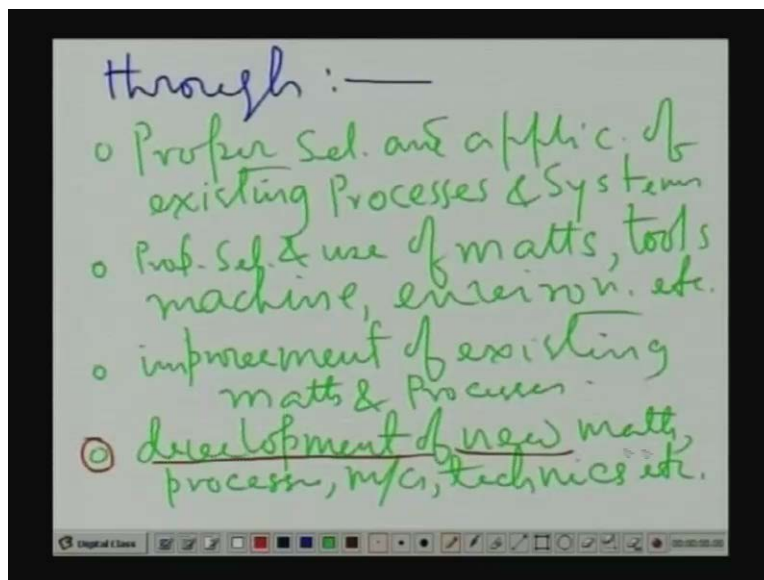 through :—
o Proper Sel. and applic. of
existing Processes & Systems
o Prop. Sel. & use of matls, tools
machine, environ. etc.
o improvement of existing
matls & Processes.
o development of new matls,
processes, m/cs, technics etc.
Digital Class 00:00:00.00